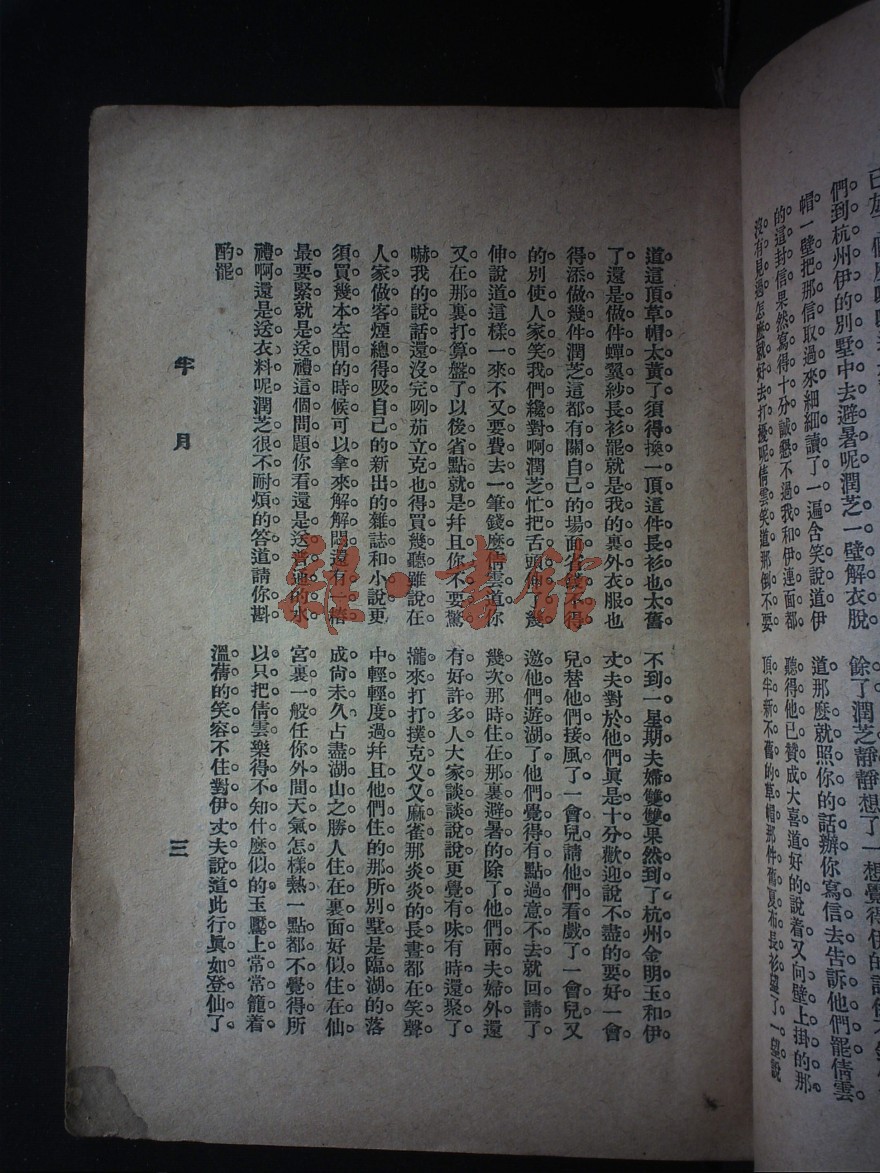 已
們到杭州伊的別墅中去避暑呢潤芝一壁解衣脫
帽一壁把那信取過來細細讀了一遍含笑說道伊
的這封信果然寫得十分誠懇不過我和伊連面都
沒有見過怎麼就好去打擾呢倩雲笑道那倒不要
餘了潤芝靜靜想了一想覺得伊的話
道那麼就照你的話辦你寫信去告訴他們罷倩雲
聽得他已贊成大喜道好的說着又向壁上掛的那
頂半新不舊的草帽那件夏布長衫望了一望說
道這頂草帽太黃了須得換一頂這件長衫也太舊
了還是做件蟬翼紗長衫罷就是我的裏外衣服也
得添做幾件潤芝這都有關自己的場面省 不得
的別使人家笑我們纔對啊潤芝忙把舌頭伸了幾
伸說道這樣一來不又要費去一筆錢麼倩雲道你
又在那裏打算盤了以後省點就是幷且你不要驚
嚇我的說話還沒完咧茄立克也得買幾聽雖說在
人家做客煙總得吸自己的新出的雜誌和小說更
須買幾本空閒的時候可以拿來解解悶還有一樁
最要緊就是送禮這個問題你看還是送 他的水
禮啊還是送衣料呢潤芝很不耐煩的答道請你斟
酌罷
不到一星期夫婦雙雙果然到了杭州金明玉和伊
丈夫對於他們眞是十分歡迎說不盡的要好一會
兒替他們接風了一會兒請他們看戲了一會兒又
邀他們遊湖了他們覺得有點過意不去就回請了
幾次那時住在那裏避暑的除了他們兩夫婦外還
有好許多人大家談談說說更覺有味有時還聚了
攏來打打撲克叉叉麻雀那炎炎的長晝都在笑聲
中輕輕度過幷且他們住的那所別墅是臨湖的落
成尙未久占盡湖山之勝人住在裏面好似住在仙
宮裏一般任你外間天氣怎樣熱一點都不覺得所
以只把倩雲樂得不知什麼似的玉靨上常常籠着
溫蒨的笑容不住對伊丈夫說道此行眞如登仙了
半月
三
雜·書館